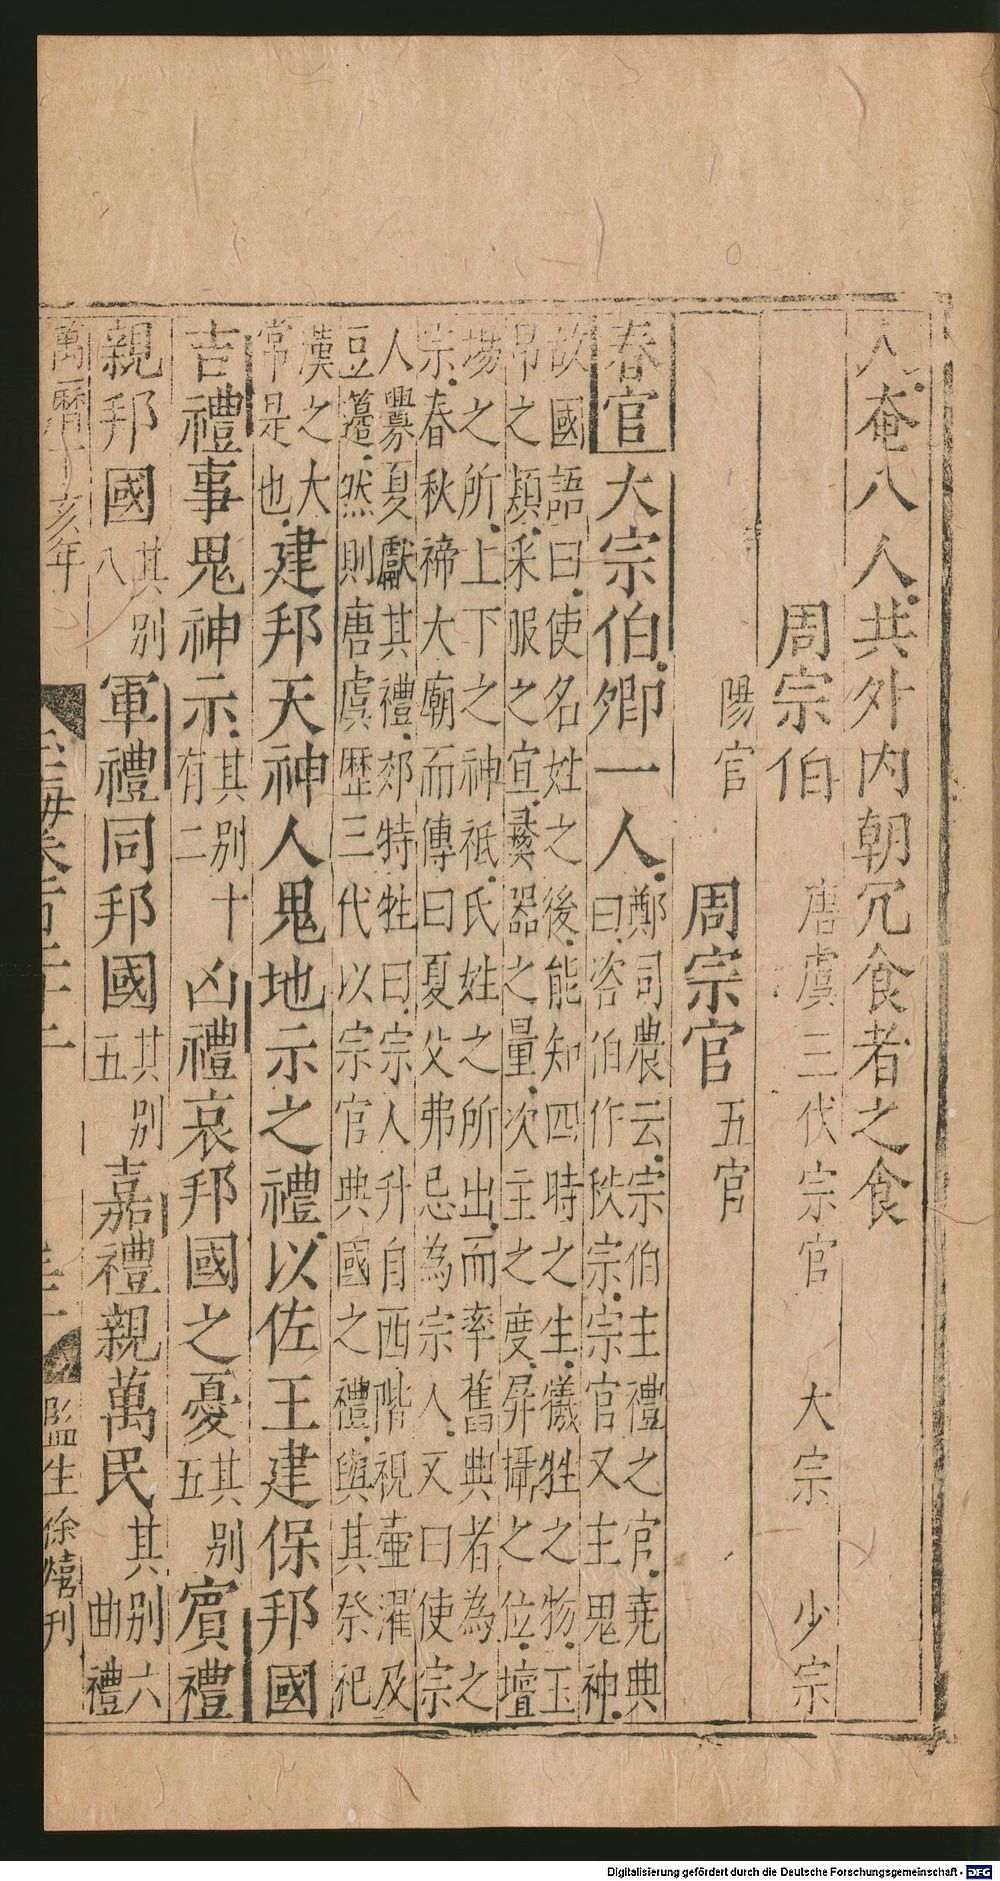 人奄八人共外内朝冗食者之食
周宗伯 唐虞三代宗官 大宗 少宗
陽官 周宗官 五官
春官大宗伯卿一人鄭司農云宗伯主禮之官堯典
曰咨伯作秩宗宗官又主鬼神
故國語曰使名姓之後能知四時之生犧牲之物玉
帛之類采服之宜彝器之量次主之度屏攝之位壇
場之所上下之神祇氏姓之所出而率舊典者為之
宗春秋禘大廟而傳曰夏父弗忌為宗人又曰使宗
人釁夏獻其禮郊特牲曰宗人升自西階視壷濯及
豆籩然則唐虞歴三代以宗官典國之禮與其祭祀
漢之大
常是也建邦天神人鬼地示之禮以佐王建保邦國
吉禮事鬼神示其别十
有二凶禮哀邦國之憂其别
五賓禮
親邦國其别
八軍禮同邦國其别
五嘉禮親萬民其别六
曲禮
萬曆丁亥年 玉海卷百二十二 監生徐熺刋
Digitalisierung gefördert durch die Deutsche Forschungsgemeinschaft - DFG